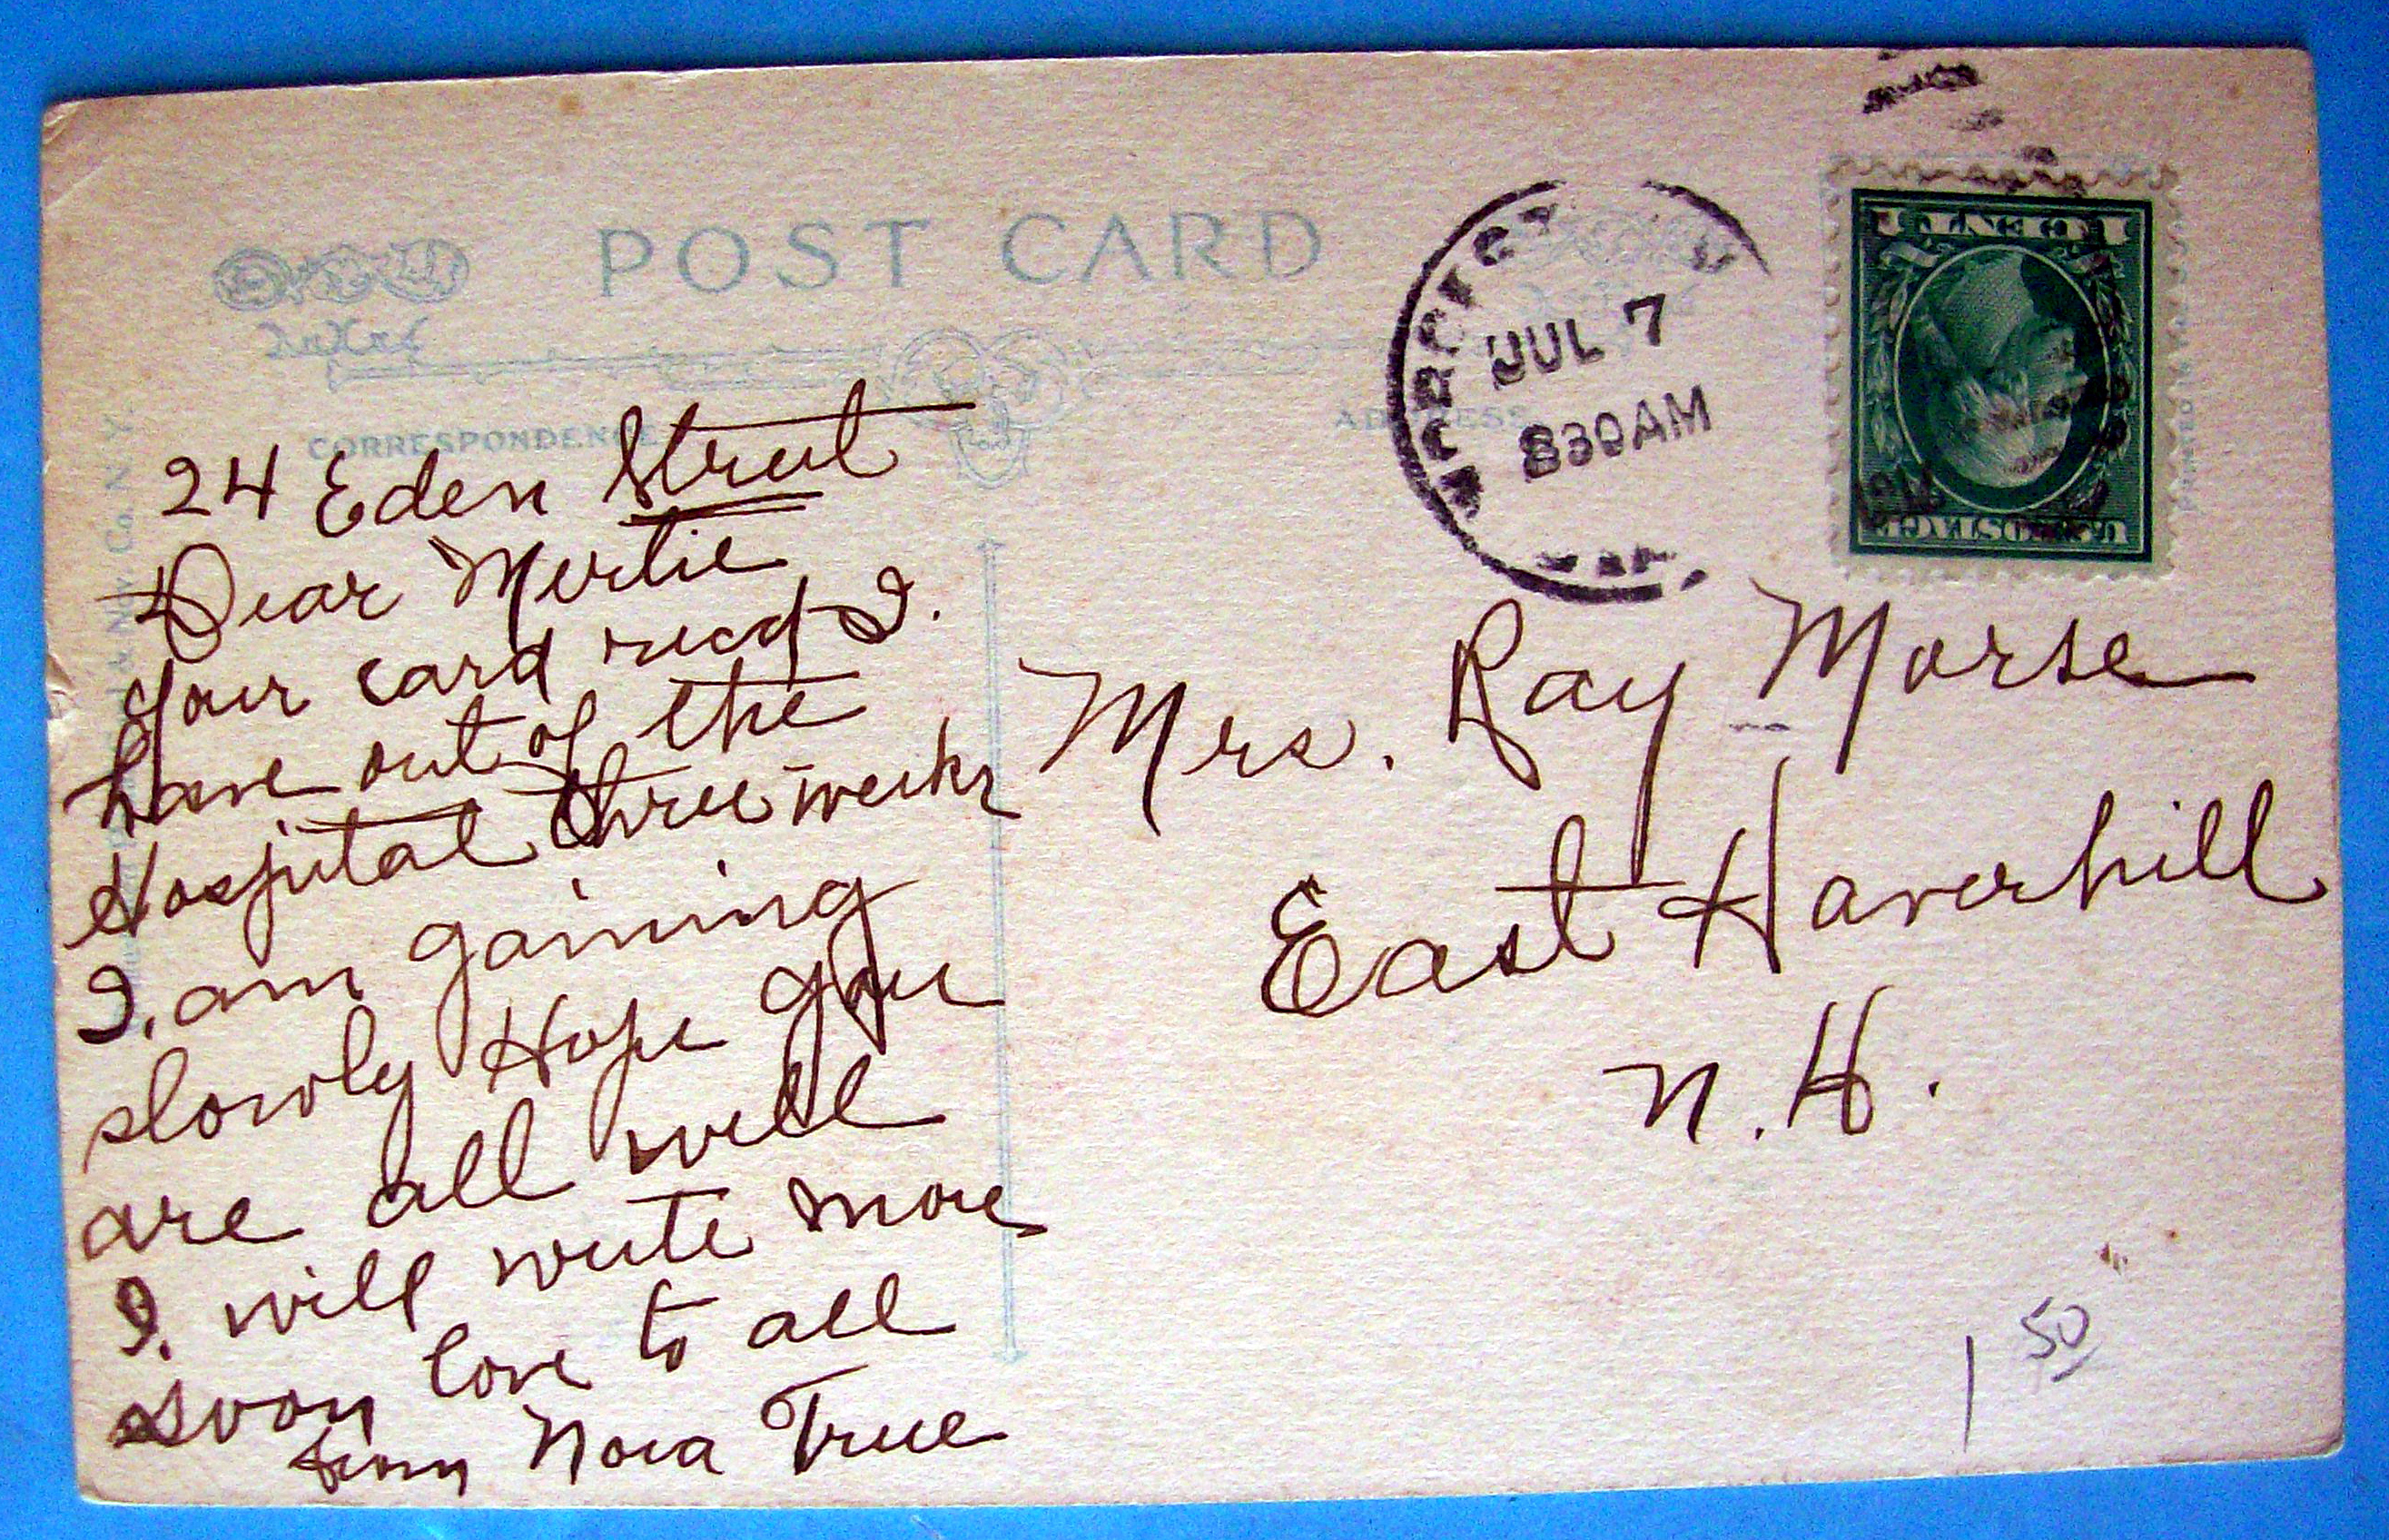 POST CARD
CORRESPONDENCE
ADDRESS
JUL 7
830AM
1 CENT 1
U.S. POSTAGE
24 Eden Street
Dear Mertie
Your card recd I.
have out of the
Hospital three weeks
I. am gaining
slowly Hope you
are all well
I. will write more
soon love to all
from Nora True
Mrs. Ray Morse
East Haverhill
N. H.
1 50